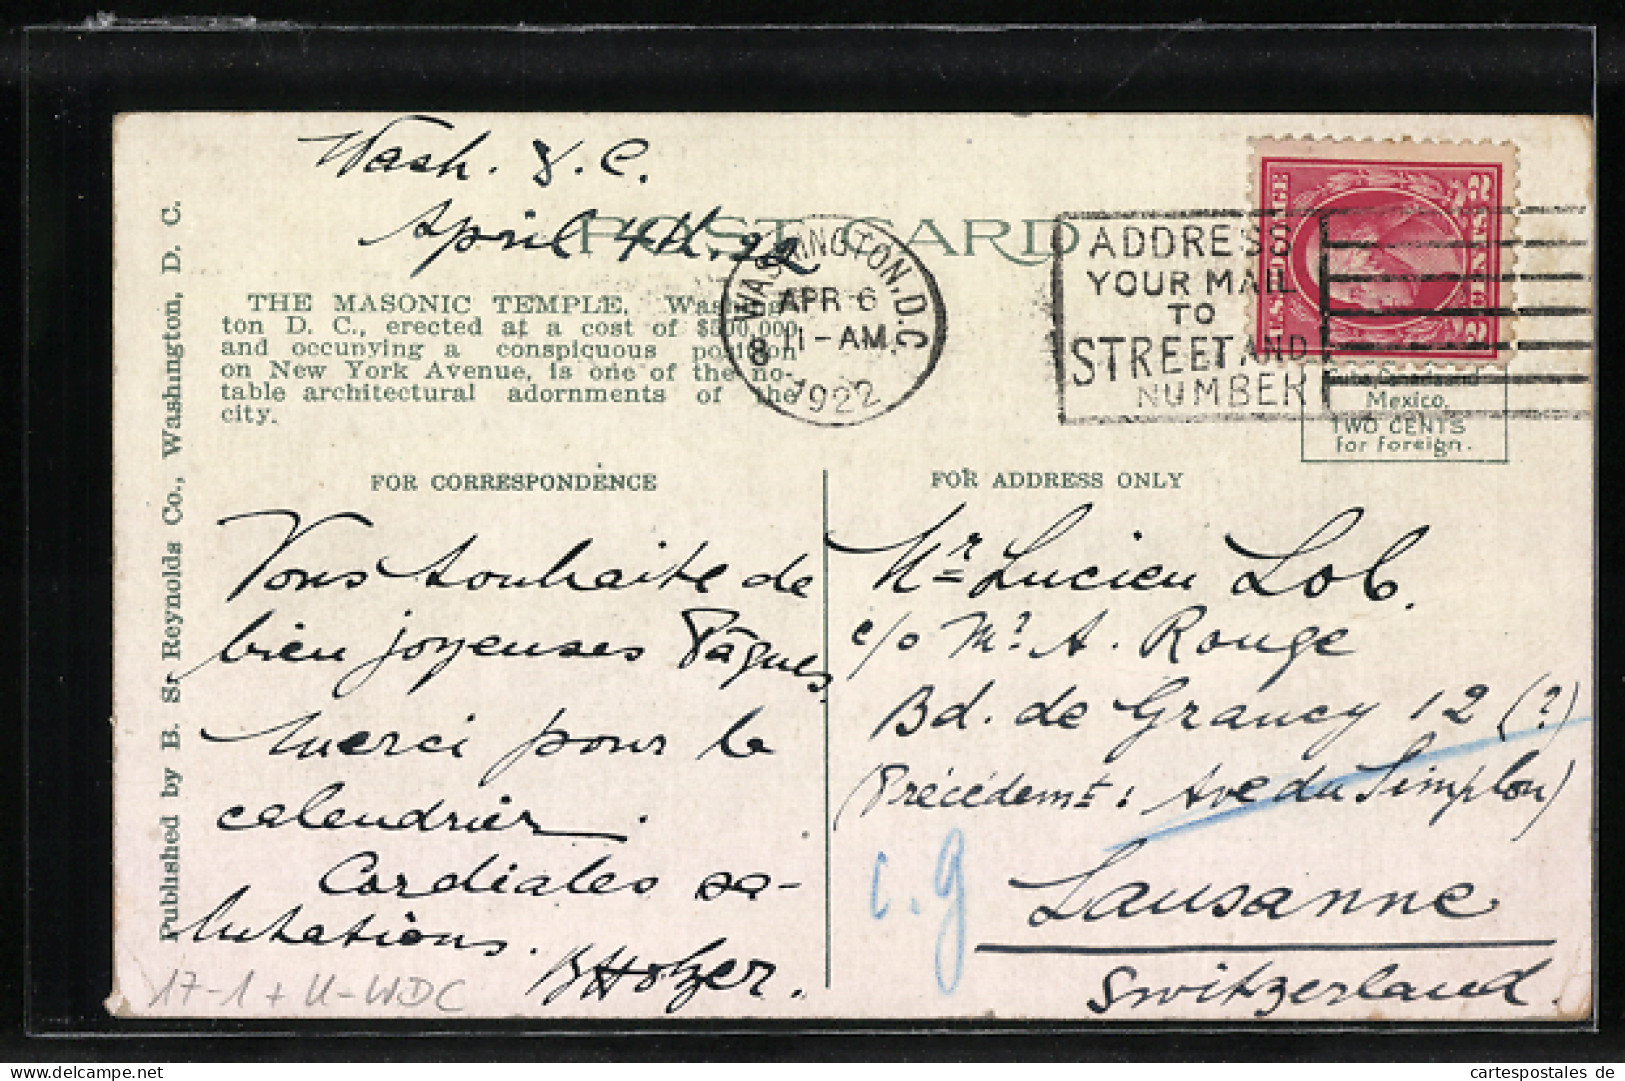 Wash. D. C.
April 4th. 22
POST CARD
THE MASONIC TEMPLE, Washing-
ton D. C., erected at a cost of $500,000
and occupying a conspicuous position
on New York Avenue, is one of the no-
table architectural adornments of the
city.
Published by B. S. Reynolds Co., Washington, D. C.
WASHINGTON, D.C.
APR 6
11-AM
8
1922
ADDRESS
YOUR MAIL
TO
STREET AND
NUMBER
U.S. POSTAGE
2 CENTS 2
Cuba, Canada and
Mexico.
TWO CENTS
for foreign.
FOR CORRESPONDENCE
Vous souhaite de
bien joyeuses Pâques
Merci pour le
calendrier.
Cordiales sa-
lutations.
B Holzer.
17-1 + U-WDC
FOR ADDRESS ONLY
Mr Lucien Lob.
c/o Mr. A. Rouge
Bd. de Grancy 12 (?)
(Précédemt: Ave du Simplon)
c. g
Lausanne
Switzerland.
www.cartespostales.eu
cartespostales de